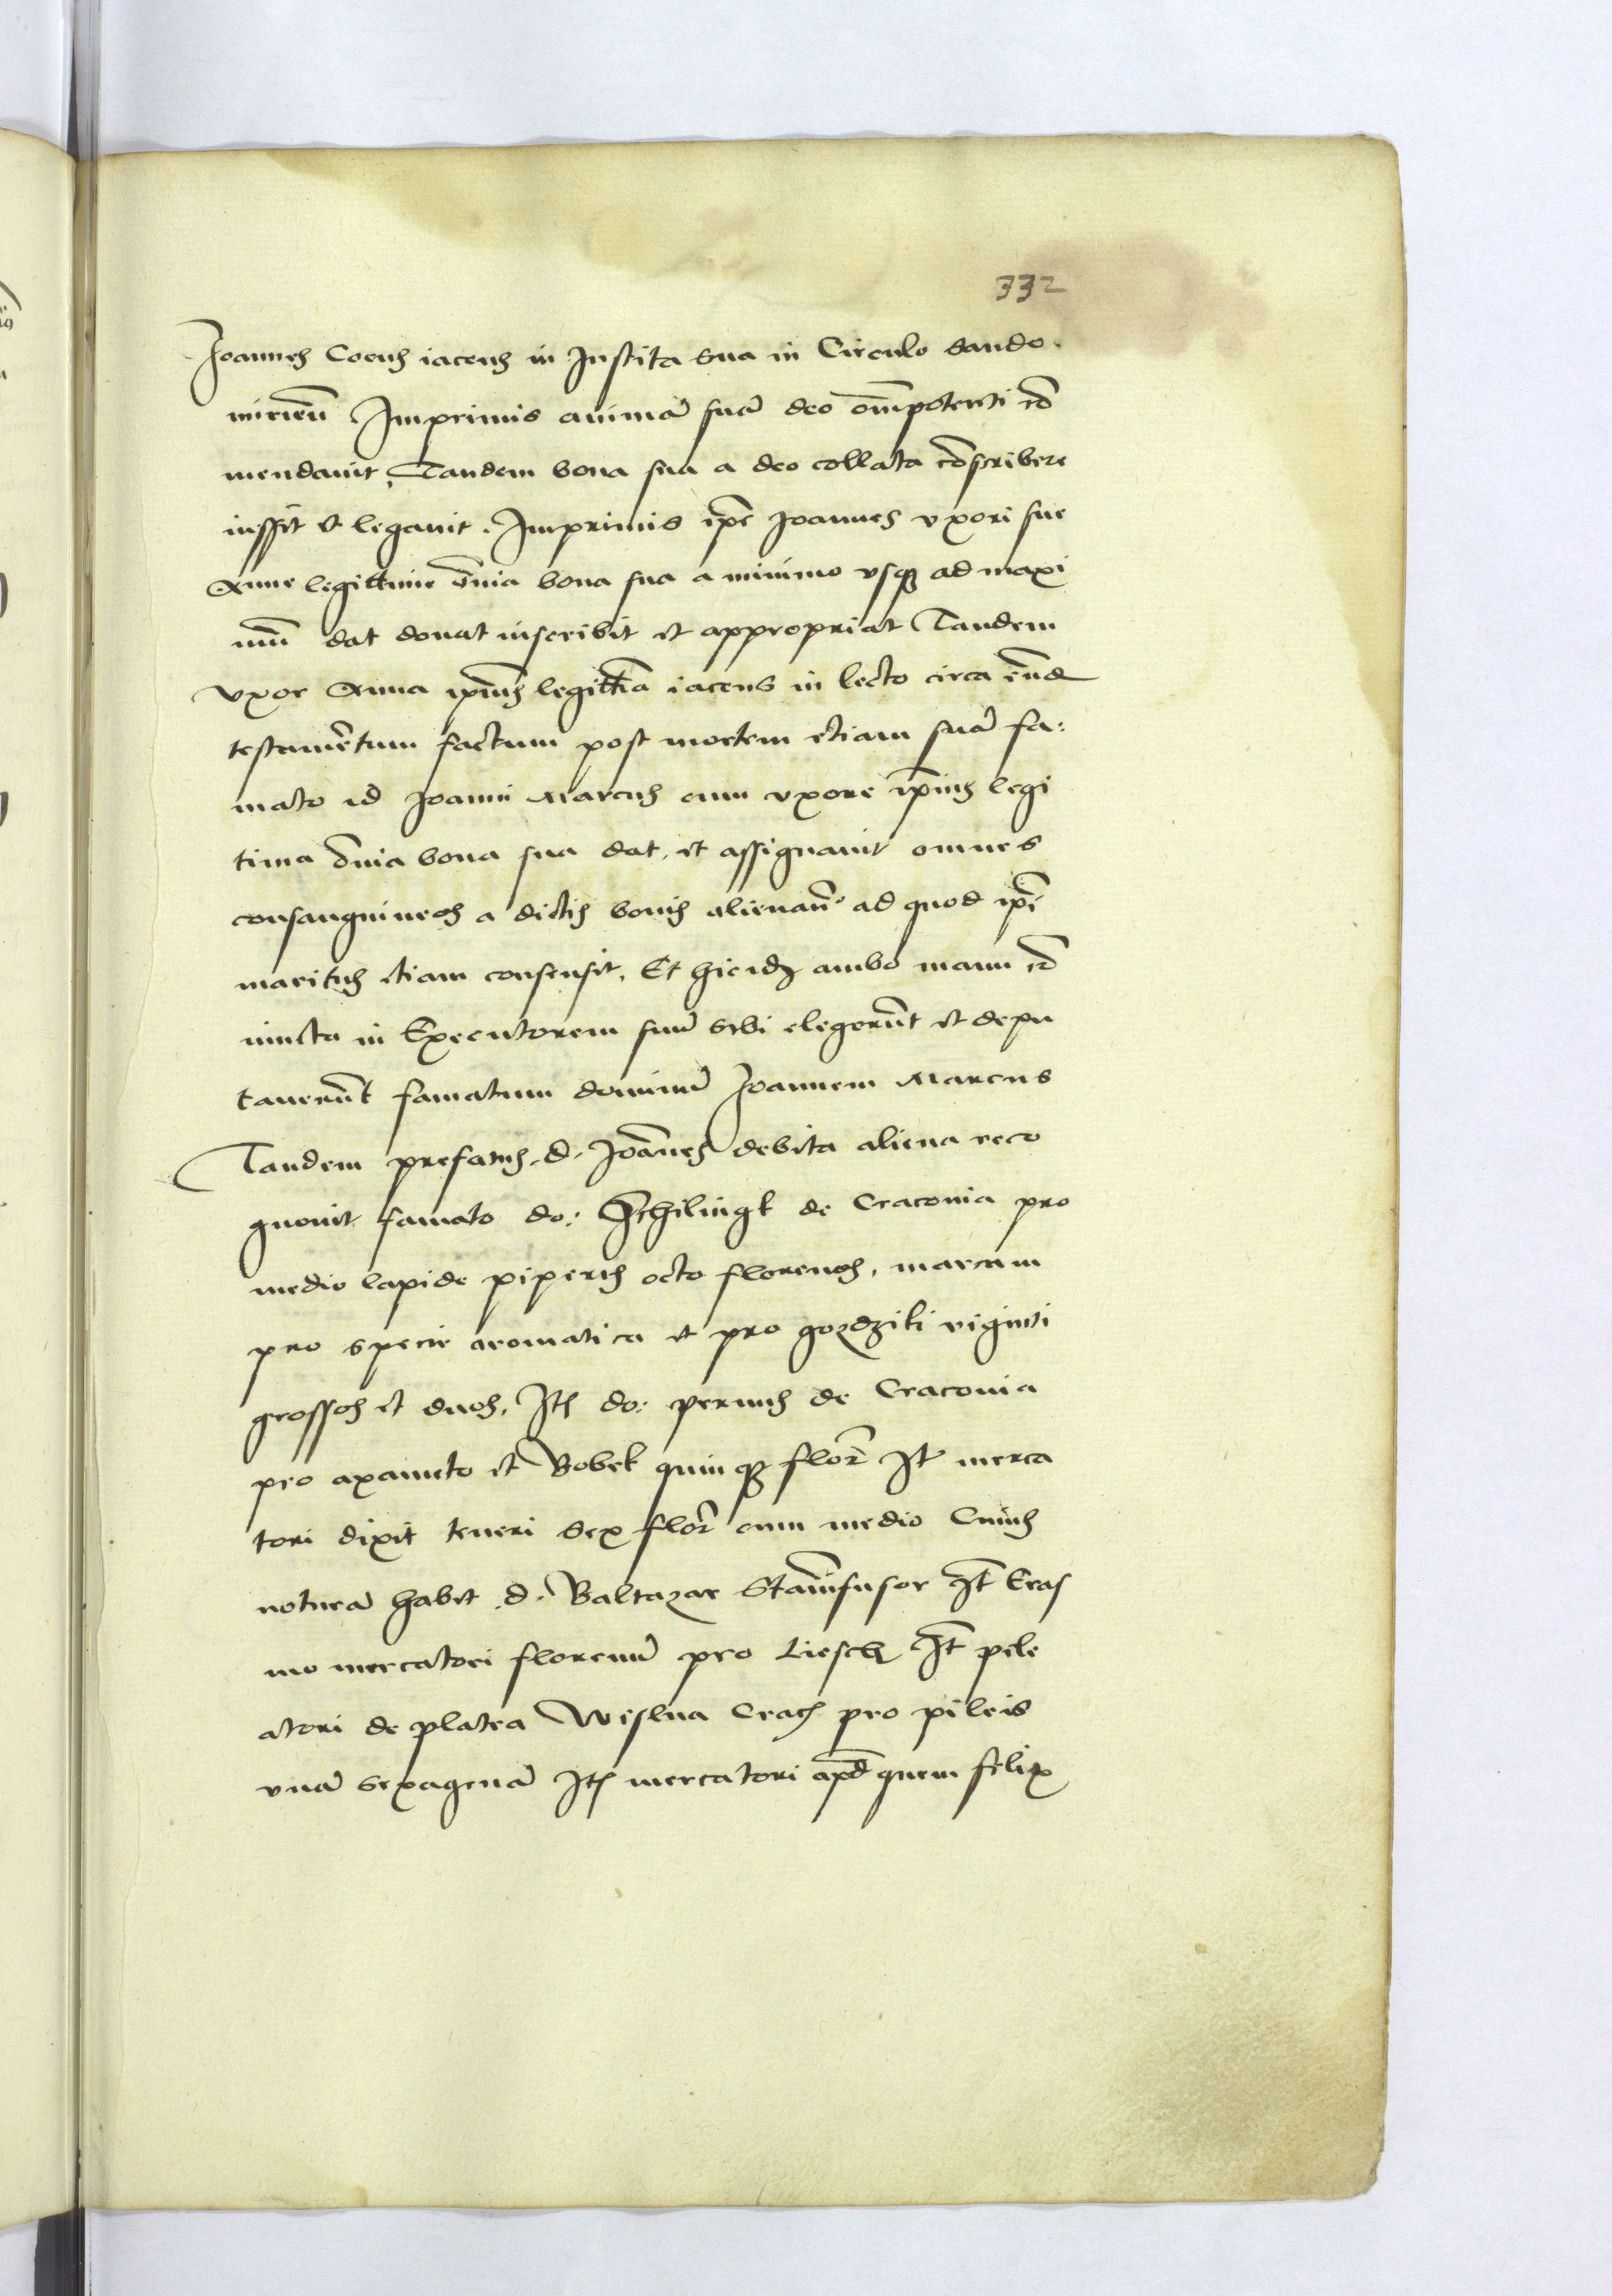 332
Joannes Cocus iacens in Instita sua in Circulo Sando.
miriēn̄ Imprimis animā suā deo om̄potenti cō
mendauit, Tandem bona sua a deo collata cōscribere
iussit et legauit. Imprimis ip̄e Joannes vxori sue
Anne legittime ōnia bona sua a minimo vsqꝫ ad maxi
mū dat donat inscribit et appropriat Tandem
vxor Anna ip̄ius legittīa iacens in lecto circa eūd
testamētum factum post mortem etiam suā fa:
mato d Joanni Marcus cum vxore ip̄ius legi
tima ōnia bona sua dat, et assignauit omnes
consanguineos a dictis bonis alienan̄ ad quod ip̄e
maritus etiam consensit. Et hic idꝫ ambo manu cō
iuncta in Executorem suū sibi elegerūt et depu
tauerūt famatum dominū Joannem Marcus
Tandem prefatus .d. Joānes debita aliena reco
gnouit famato do: Schilingk de Craconia pro
medio lapide piperis octo florenos, marcam
pro specie aromatica et pro gozdziki viginti
grossos et duos, Itē do: perinus de Craconia
pro axamito et Bobek quinqꝫ flor̄ It merca
tori dixit teneri Sex flor̄ cum medio Cuius
noturā habet .d. Baltazar Stannifusor It̄ Eras
mo mercatori florenū pro Liesch It̄ pile
atori de platea Wislna Crac̄ pro pileis
vnā sexagenā Itē mercatori apd̄ quem felix